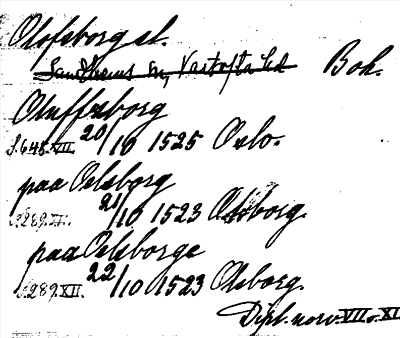 Olofsborg sl.
Sandhems sn, Vartofta hd Boh.
Oluffsborg
S. 648. VII. 20/10 1525 Oslo.
paa Oelsborg
S. 289. XI. 21/10 1523 Olsborg.
paa Oelsborge
S. 289. XII. 22/10 1523 Olsborg.
Dipl. norv. VII o. XI